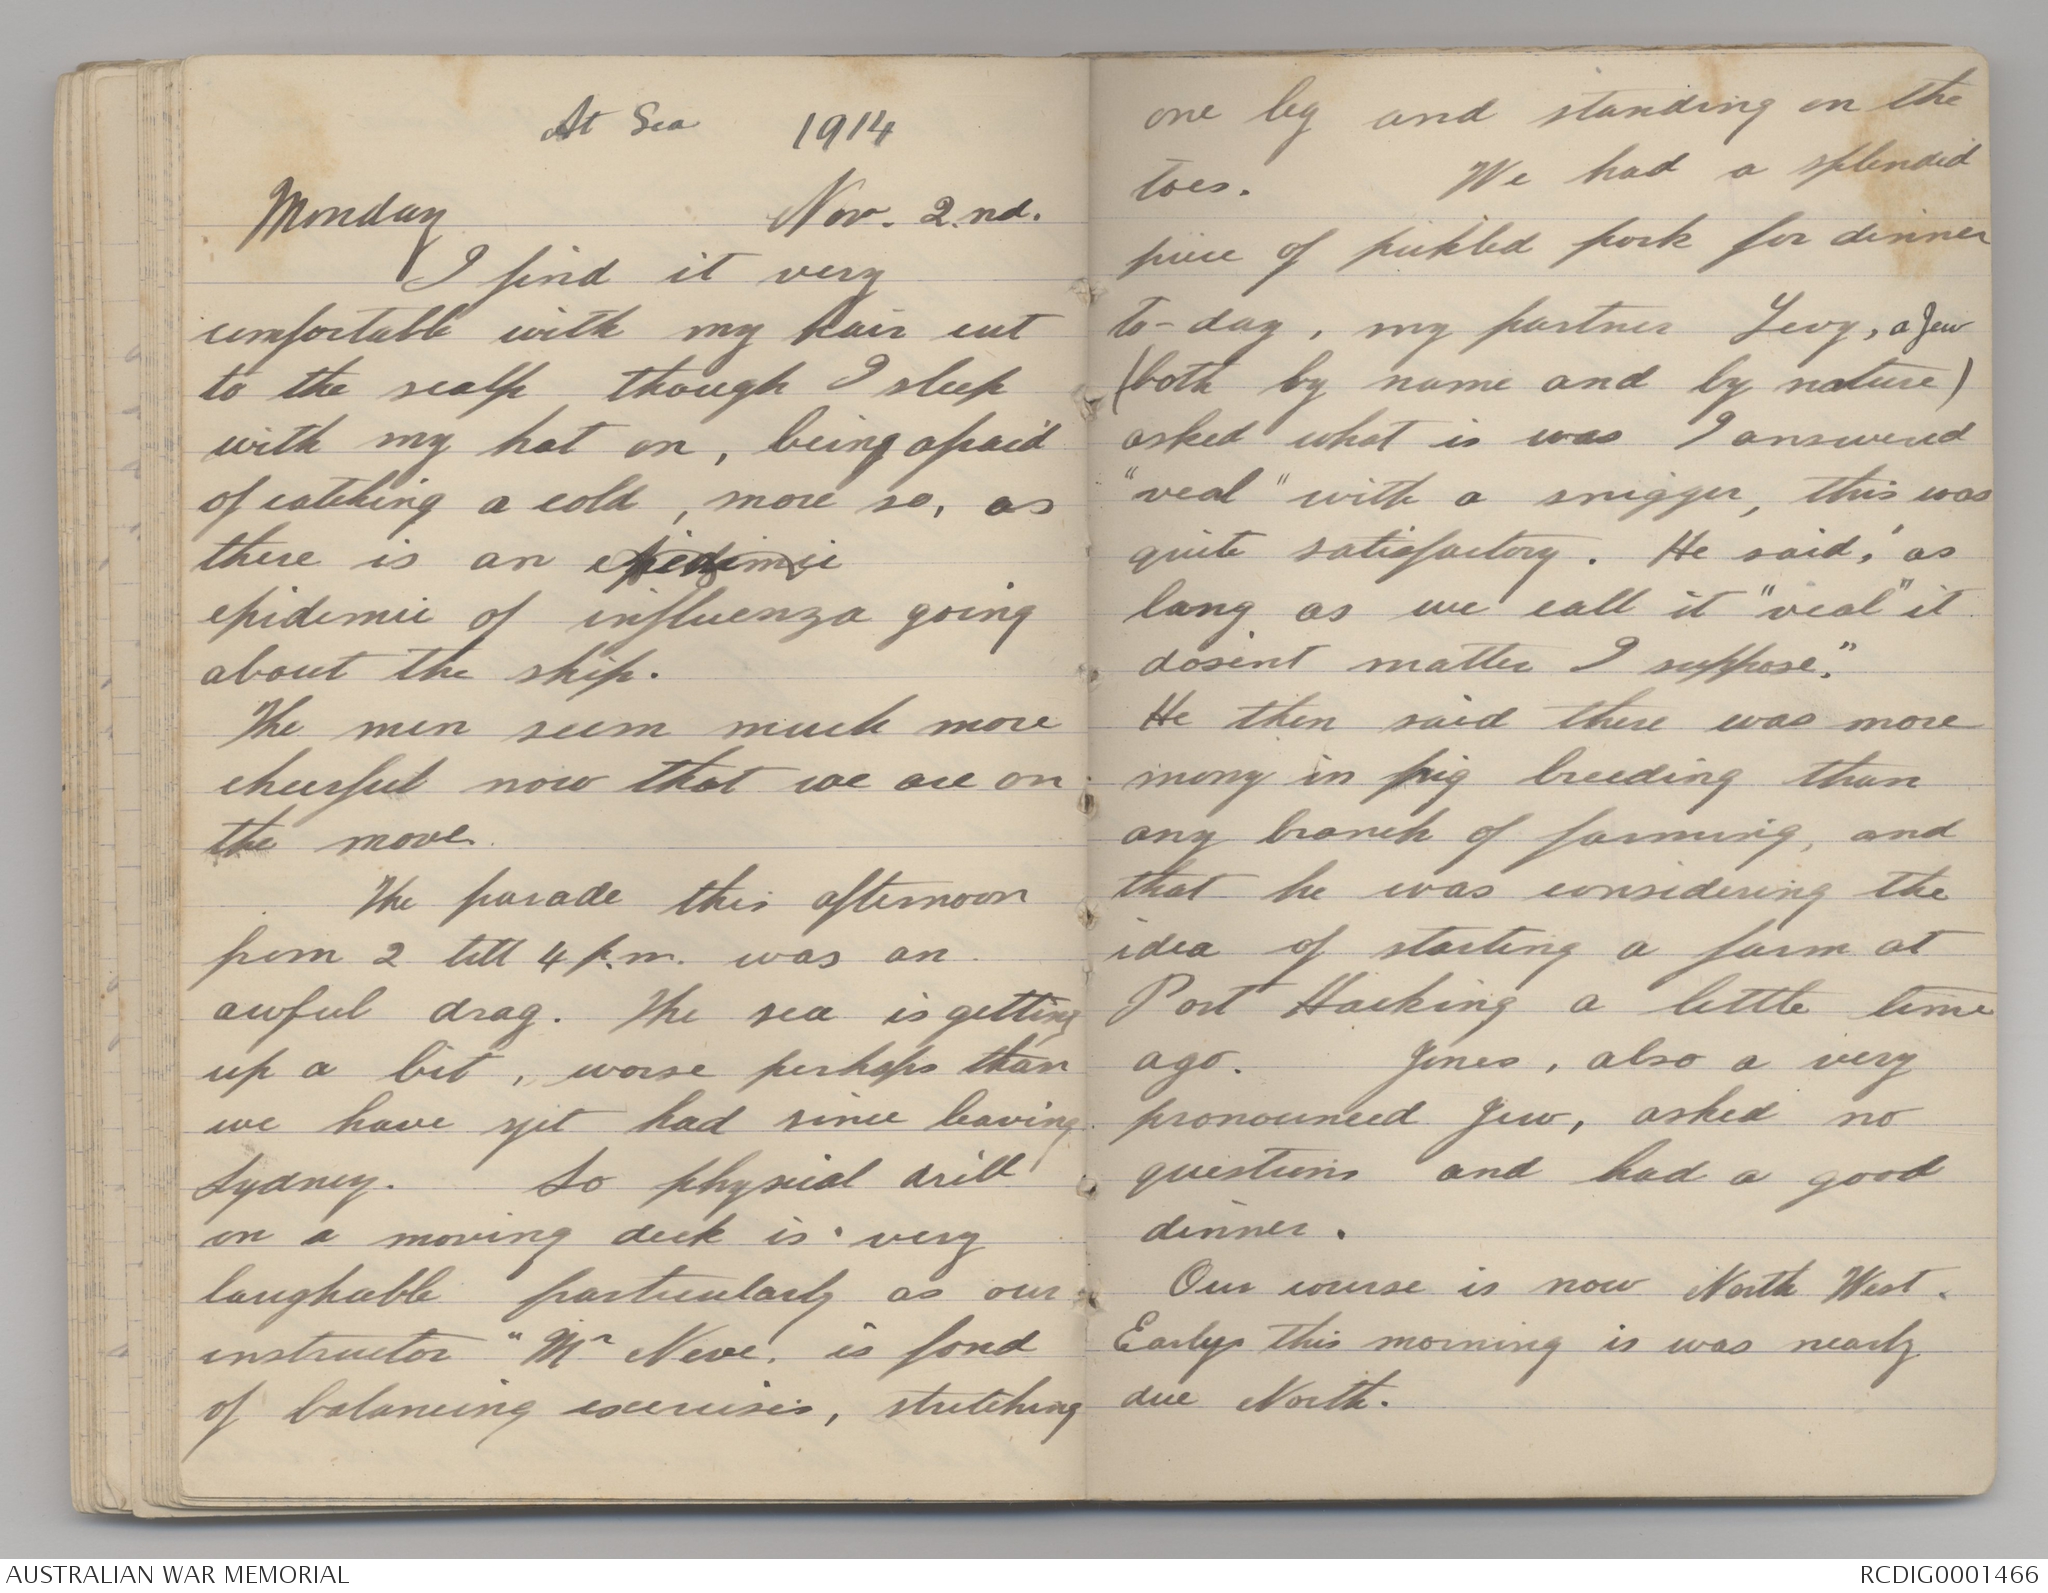 At Sea 1914
Monday Nov. 2.nd.
I find it very
comfortable with my hair cut
to the scalp though I sleep
with my hat on, being afraid
of catching a cold, more so, as
there is an
epidemic of influenza going
about the ship.
The men seem much more
cheerful now that we are on
the move.
The parade this afternoon
from 2 till 4 p.m. was an
awful drag. The sea is getting
up a bit, worse perhaps than
we have yet had since leaving
Sydney. So physical drill
on a moving deck is very
laughable particularly as our
instructor "Mr Neve. is fond
of balancing exercises, stretching
one leg and standing on the
toes. We had a splendid
piece of pickled pork for dinner
to-day, my partner Levy, a Jew
(both by name and by nature)
asked what is was I answered
"veal" with a snigger, this was
quite satisfactory. He said,' as
long as we call it "veal" it
dosent matter I suppose."
He then said there was more
mony in pig breeding than
any branch of farming, and
that he was considering the
idea of starting a farm at
Port Hacking a little time
ago. Jones, also a very
pronounced Jew, asked no
questions and had a good
dinner.
Our course is now North West.
Early this morning is was nearly
due North.
AUSTRALIAN WAR MEMORIAL RCDIG0001466